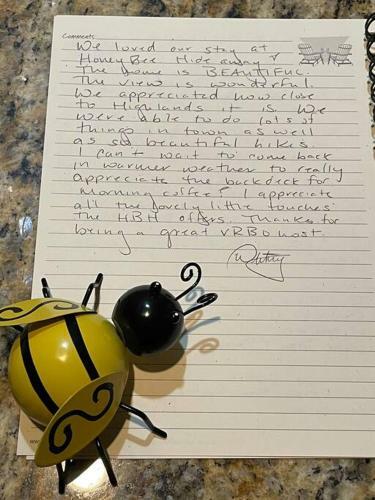 Comments
We loved our stay at
Honey Bee Hide away!
The home is BEAUTIFUL.
The view is wonderful.
We appreciated how close
to Highlands it is. We
were able to do lots of
things in town as well
as so beautiful hikes.
I can't wait to come back
in warmer weather to really
appreciate the backdeck for
morning coffee! I appreciate
all the lovely little touches
the HBH offers. Thanks for
being a great VRBO host.
Whitney